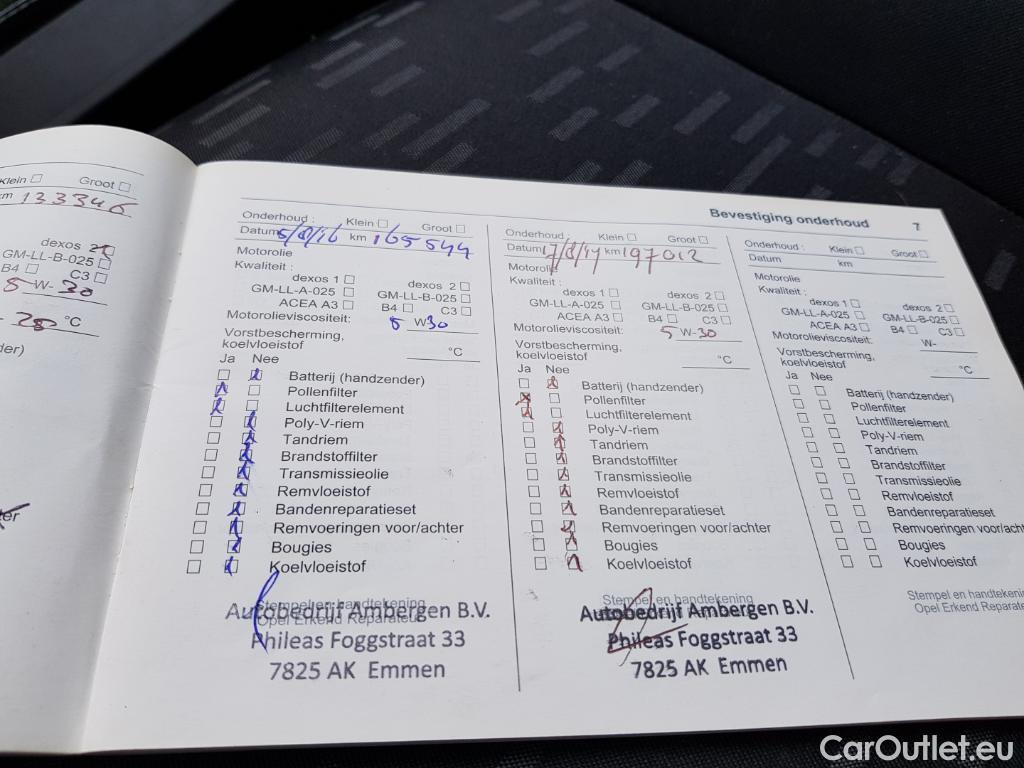 Klein Groot
km 133346
dexos 2
GM-LL-B-025
B4 C3
5 W-30
°C
Bevestiging onderhoud 7
Onderhoud : Klein Groot
Datum 5/8/16 km 165544
Motorolie
Kwaliteit :
dexos 1 dexos 2
GM-LL-A-025 GM-LL-B-025
ACEA A3 B4 C3
Motorolieviscositeit: 5 W30
Vorstbescherming,
koelvloeistof °C
Ja Nee
Batterij (handzender)
Pollenfilter
Luchtfilterelement
Poly-V-riem
Tandriem
Brandstoffilter
Transmissieolie
Remvloeistof
Bandenreparatieset
Remvoeringen voor/achter
Bougies
Koelvloeistof
Stempel en handtekening
Opel Erkend Reparateur
Autobedrijf Ambergen B.V.
Phileas Foggstraat 33
7825 AK Emmen
Onderhoud : Klein Groot
Datum km 197012
Motorolie
Kwaliteit :
dexos 1 dexos 2
GM-LL-A-025 GM-LL-B-025
ACEA A3 B4 C3
Motorolieviscositeit: 5 W-30
Vorstbescherming,
koelvloeistof °C
Ja Nee
Batterij (handzender)
Pollenfilter
Luchtfilterelement
Poly-V-riem
Tandriem
Brandstoffilter
Transmissieolie
Remvloeistof
Bandenreparatieset
Remvoeringen voor/achter
Bougies
Koelvloeistof
Stempel en handtekening
Autobedrijf Ambergen B.V.
Phileas Foggstraat 33
7825 AK Emmen
Onderhoud : Klein Groot
Datum km
Motorolie
Kwaliteit :
dexos 1 dexos 2
GM-LL-A-025 GM-LL-B-025
ACEA A3 B4 C3
Motorolieviscositeit: W-
Vorstbescherming,
koelvloeistof °C
Ja Nee
Batterij (handzender)
Pollenfilter
Luchtfilterelement
Poly-V-riem
Tandriem
Brandstoffilter
Transmissieolie
Remvloeistof
Bandenreparatieset
Remvoeringen voor/acht
Bougies
Koelvloeistof
Stempel en handtekenin
Opel Erkend Reparate
CarOutlet.eu